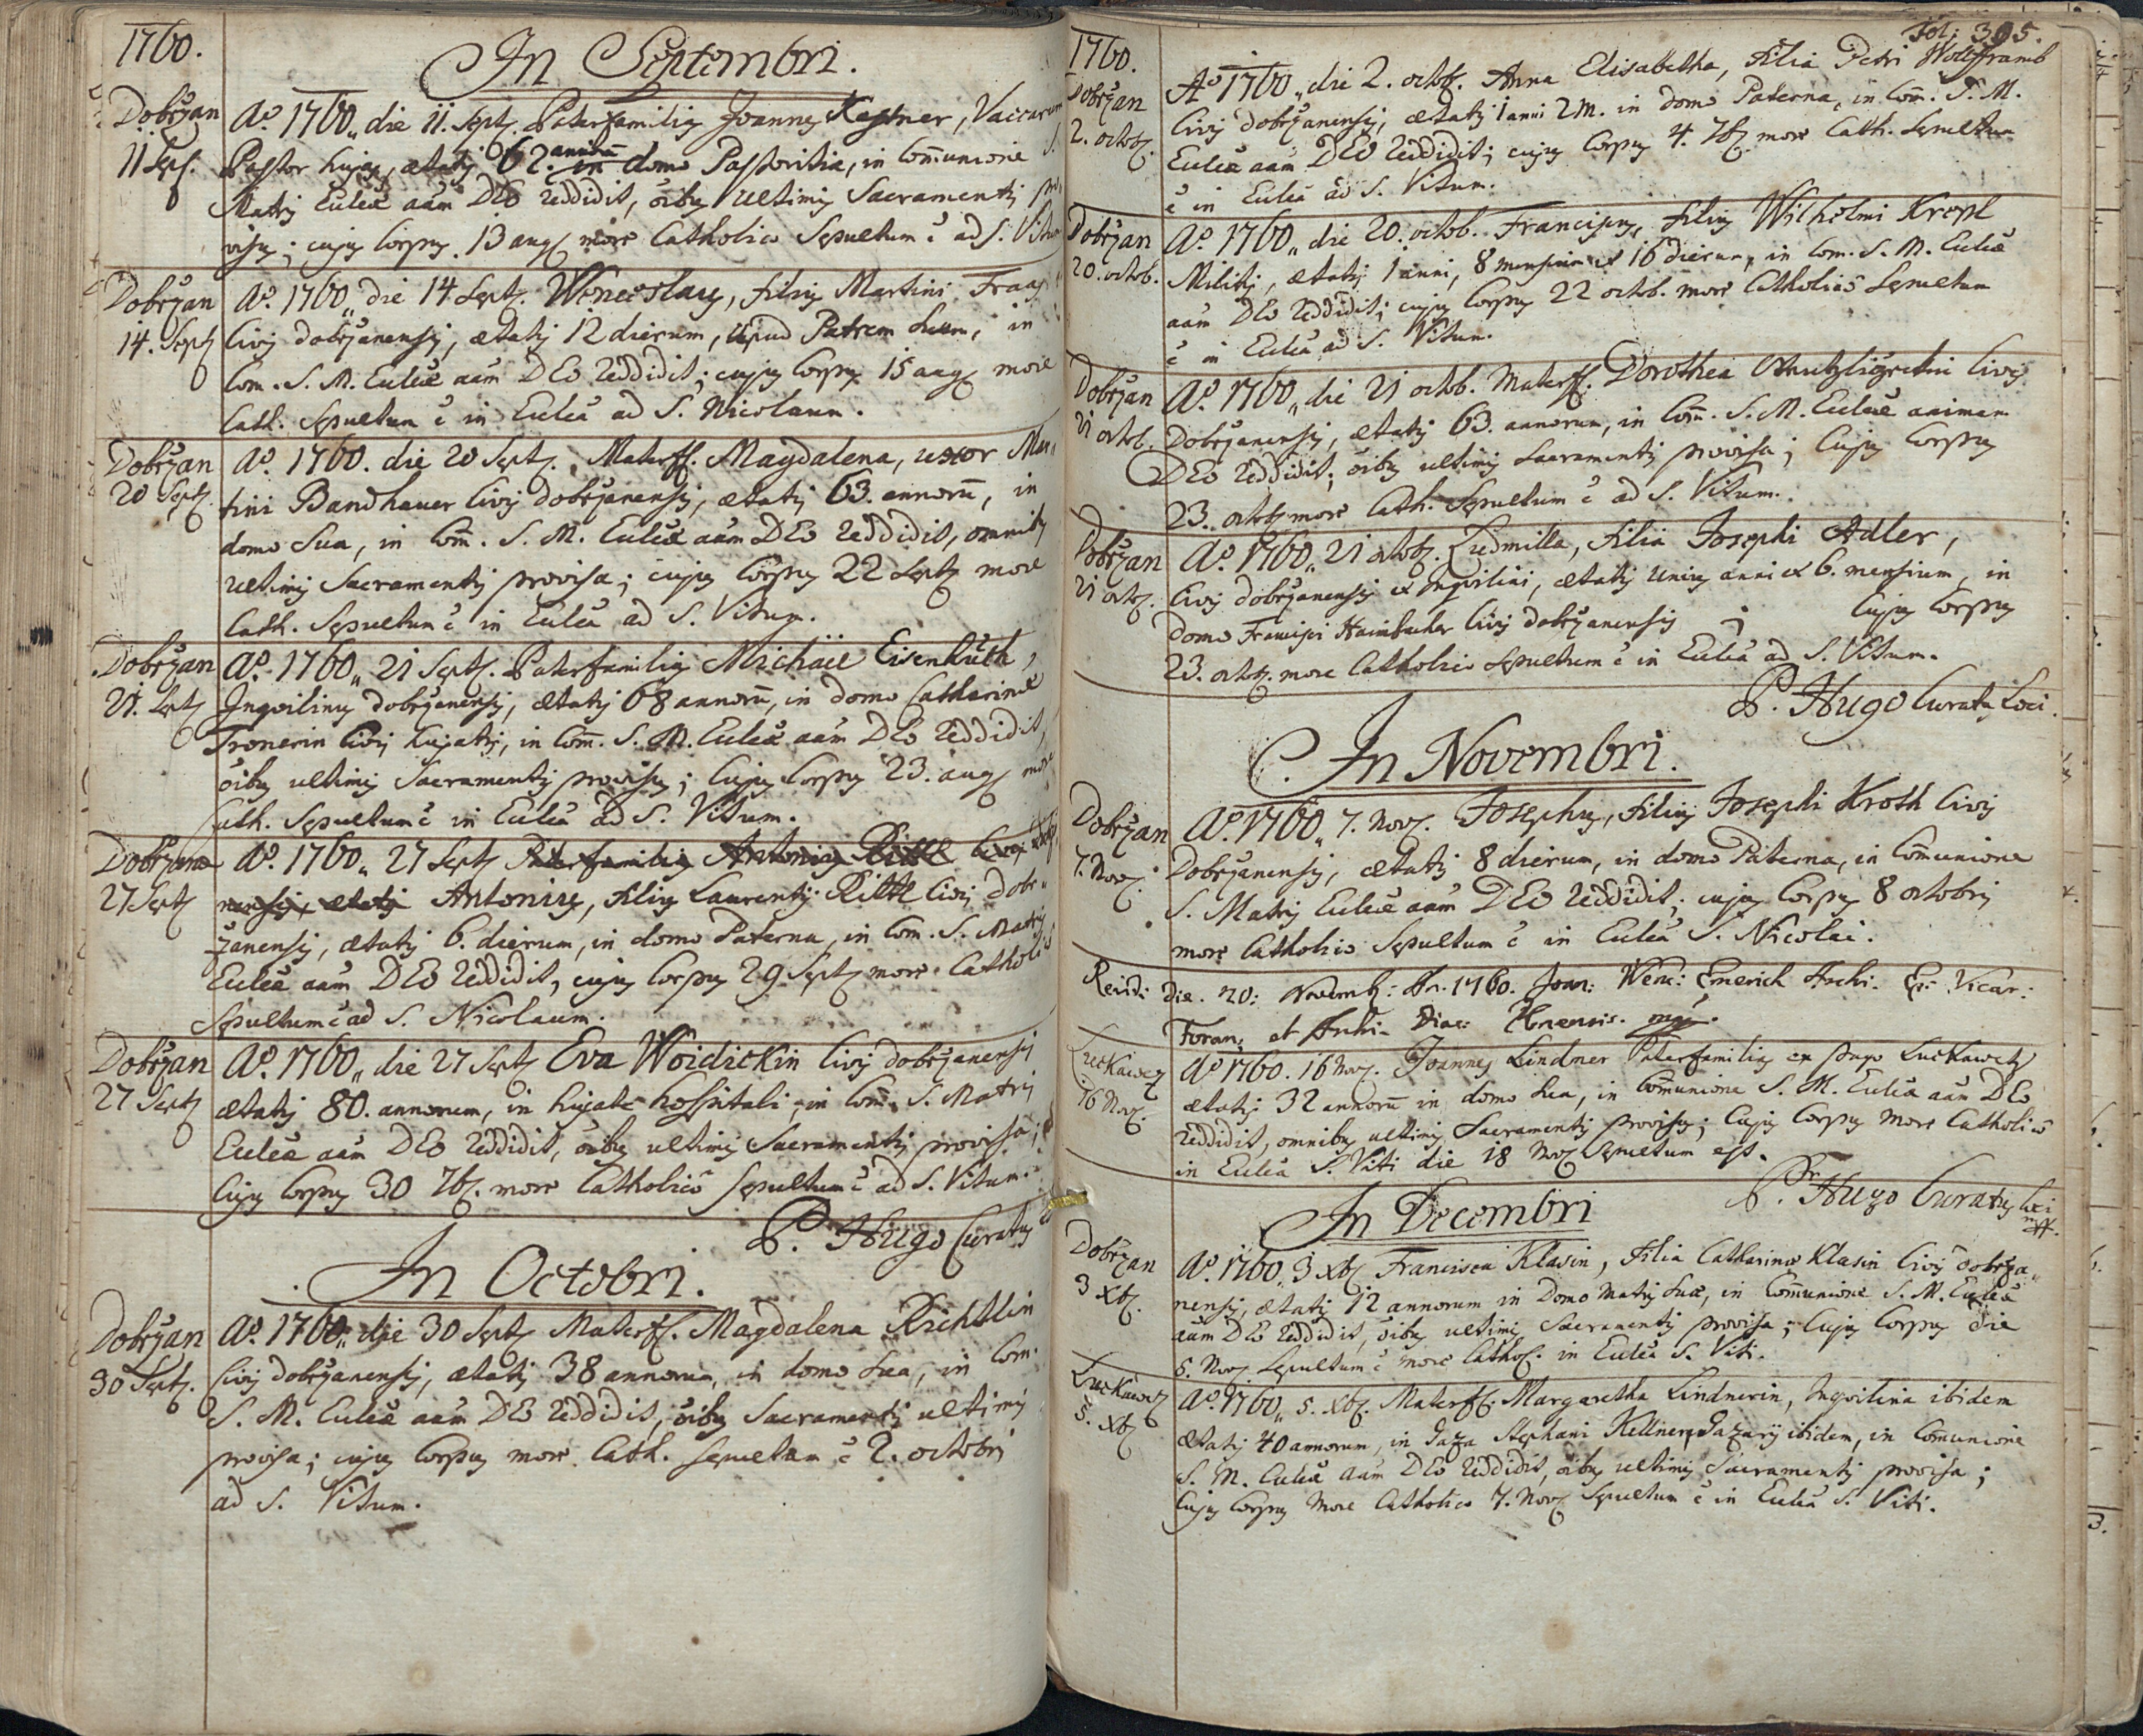 1760.
In Septembri.
Dobrzan
11 Sept.
Aº 1760„ die 11. Septz. Paterfamilias Joannes Kastner, Vaccarum
Pastor hujas, ætatis 62. annorū in domo Pastoritia, in Com̄unione S.
Matris Eccleæ aām DEO reddidit, oībus ultimis Sacramentis pro„
visus; cujus Corpus 13 augz more Catholico Sepultum ē ad S. Vitum
Dobrzan
14. Septz
Aº 1760„ die 14 Septz. Wenceslaus, filius Martini
Civis dobrzanensis, ætatis 12 dierum, apud Patrem suum, in
Com. S. M. Eccleæ aām DEO reddidit; cujus Corpus 15 augz more
Cath. Sepultum ē in Ecclea ad S. Nicolaum.
Dobrzan
20 Septz.
Aº. 1760. die 20 Septz. Materff. Magdalena, uxor Mar„
tini Bandhauer Civis dobrzanensis, ætatis 63. annorū, in
domo sua, in Com̄. S. M. Eccleæ aām DEO reddidit, omnibus
ultimis Sacramentis provisa; cujus Corpus 22 Septz more
Cath. Sepultum ē in Ecclea ad S. Vitum.
Dobrzan
21. Septz
Aº. 1760„ 21 Septz. Paterfamilias Michael Eisenhuth,
Inquilinus dobrzanensis, ætatis 68 annorū, in domo Catharinæ
Tronerin Civis hujatis, in Com̄. S. M. Eccleæ aām DEO reddidit,
oībus ultimis Sacramentis provisus; Cujus Corpus 23. augz more
Cath. Sepultum ē in Ecclea ad S. Vitum.
Dobrzanæ
27 Septz
Aº. 1760„ 27 Septz Paterfamilias Antonius Rittl Civis
nensis, ætatis Antonius, filius Laurentij Rittl Civis Dobr„
zanensis, ætatis 6. dierum, in domo Paterna, in Com. S. Matris
Eccleæ aām DEO reddidit, cujus Corpus 29 Septz more Catholico
Sepultum ē ad S. Nicolaum.
Dobrzan
27 Septz
Aº. 1760„ die 27 Septz Eva Woidickin Civis dobrzanensis
ætatis 80. annorum, in hujate hospitali, in Com̄. S. Matris
Eccleæ aām DEO reddidit, oībus ultimis Sacramentis provisa;
Cujus Corpus 30 7bz. more Catholico Sepultum ē ad S. Vitum.
P. Hugo Curatus
In Octobri.
Dobrzan
30 Septz.
Aº. 1760„ die 30 Septz Materff. Magdalena Richtlin
Civis dobrzanensis, ætatis 38 annorum, in domo sua, in Com.
S. M. Eccleæ aām DEO reddidit, oībus Sacramentis ultimis
provisa; cujus Corpus more Cath. sepultum ē 2. octobris
ad S. Vitum.
Fol: 305.
1760.
Dobrzan
2. octobz.
Aº 1760„ die 2. octobz. Anna Elisabetha, filia Petri Wolfframb
Civis dobrzanensis, ætatis 1 anni 2 M. in domo Paterna, in Com̄. S. M.
Eccleæ aām DEO reddidit; cujus Corpus 4. 7bz more Cath. Sepultum
ē in Ecclea ad S. Vitum.
Dobrzan
20. octob.
Aº. 1760„ die 20. octob. Franciscus, filius Wilhelmi Krepl
Militis, ætatis 1 anni, 8 mensium et 16 dierum, in Com. S. M. Eccleæ
aām DEO reddidit; cujus Corpus 22 octob. more Catholico Sepultum
ē in Ecclea ad S. Vitum.
Dobrzan
21 octob.
Aº. 1760„ die 21 octob. Materff. Dorothea Civis
Dobrzanensis, ætatis 63. annorum, in Com̄. S. M. Eccleæ animam
DEO reddidit; oībus ultimis Sacramentis provisa; Cujus Corpus
23. octobz more Cath. Sepultum ē ad S. Vitum.
Dobrzan
21 octz.
Aº. 1760„ 21 octobz. Ludmilla, filia Josephi Adler,
Civis dobrzanensis et Inquilini, ætatis unius anni et 6. mensium, in
domo Francisci Haimbacher Civis dobrzanensis ; Cujus Corpus
23. octobz. more Catholico Sepultum ē in Ecclea ad S. Vitum.
P. Hugo Curatus Loci.
In Novembri.
Dobrzan
7. Novz.
Aº. 1760„ 7. Novz. Josephus, filius Josephi Kroth Civis
Dobrzanensis, ætatis 8 dierum, in domo Paterna, in Com̄unione
S. Matris Eccleæ aām DEO reddidit; cujus Corpus 8 octobris
more Catholico Sepultum ē in Ecclea S. Nicolai.
Revidi Die. 20: Novemb: An. 1760. Joan: Wenc: Emerich Archi- Ep: Vicar:
Foran: et Archi- Diac: Plnensis. mpp.
Luckawez
16 Novz.
Aº 1760. 16 Novz. Joannes Lindner Paterfamilias ex pago Luckawetz
ætatis 32 annorū in domo sua, in Com̄unione S. M. Ecclea aām DEO
reddidit, omnibus ultimis Sacramentis provisus; Cujus Corpus More Catholico
in Ecclea S. Viti die 18 Novz Sepultum est.
P. Hugo Curatus Loci
mpp.
In Decembri
Dobrzan
3 xbz.
Aº. 1760„ 3 xbz Francisca Klasin, filia Catharinæ Klasin Civis Dobrza„
nensis, ætatis 12 annorum in Domo Matris suæ, in Com̄unione S. M. Eccleæ
aām DEO reddidit, oībus ultimis Sacramentis provisa; Cujus Corpus die
5. Novz. Sepultum ē more Cathol. in Ecclea S. Viti.
Luckawetz
5. xbz
Aº. 1760„ 5. xbz. Materff. Margaretha Lindnerin, Inquilina ibidem
ætatis 40 annorum, in Gaza Stephani Kellner, Gazarij ibidem, in Com̄unione
S. M. Ecclea aām DEO reddidit, oībus ultimis Sacramentis provisa;
Cujus Corpus More Catholico 7. Novz Sepultum ē in Ecclea S. Viti.